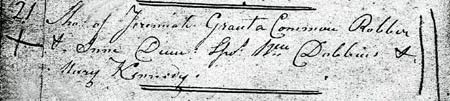 21 Tho.s of Jeremiah Grant a Common Robber
& Anne Dunn Spr. Wm Dobbins &
Mary Kennedy.